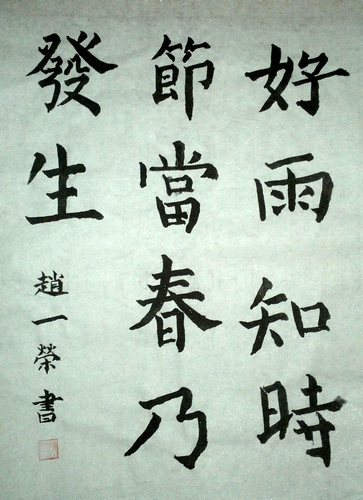 好雨知時
節當春乃
發生
趙一榮書